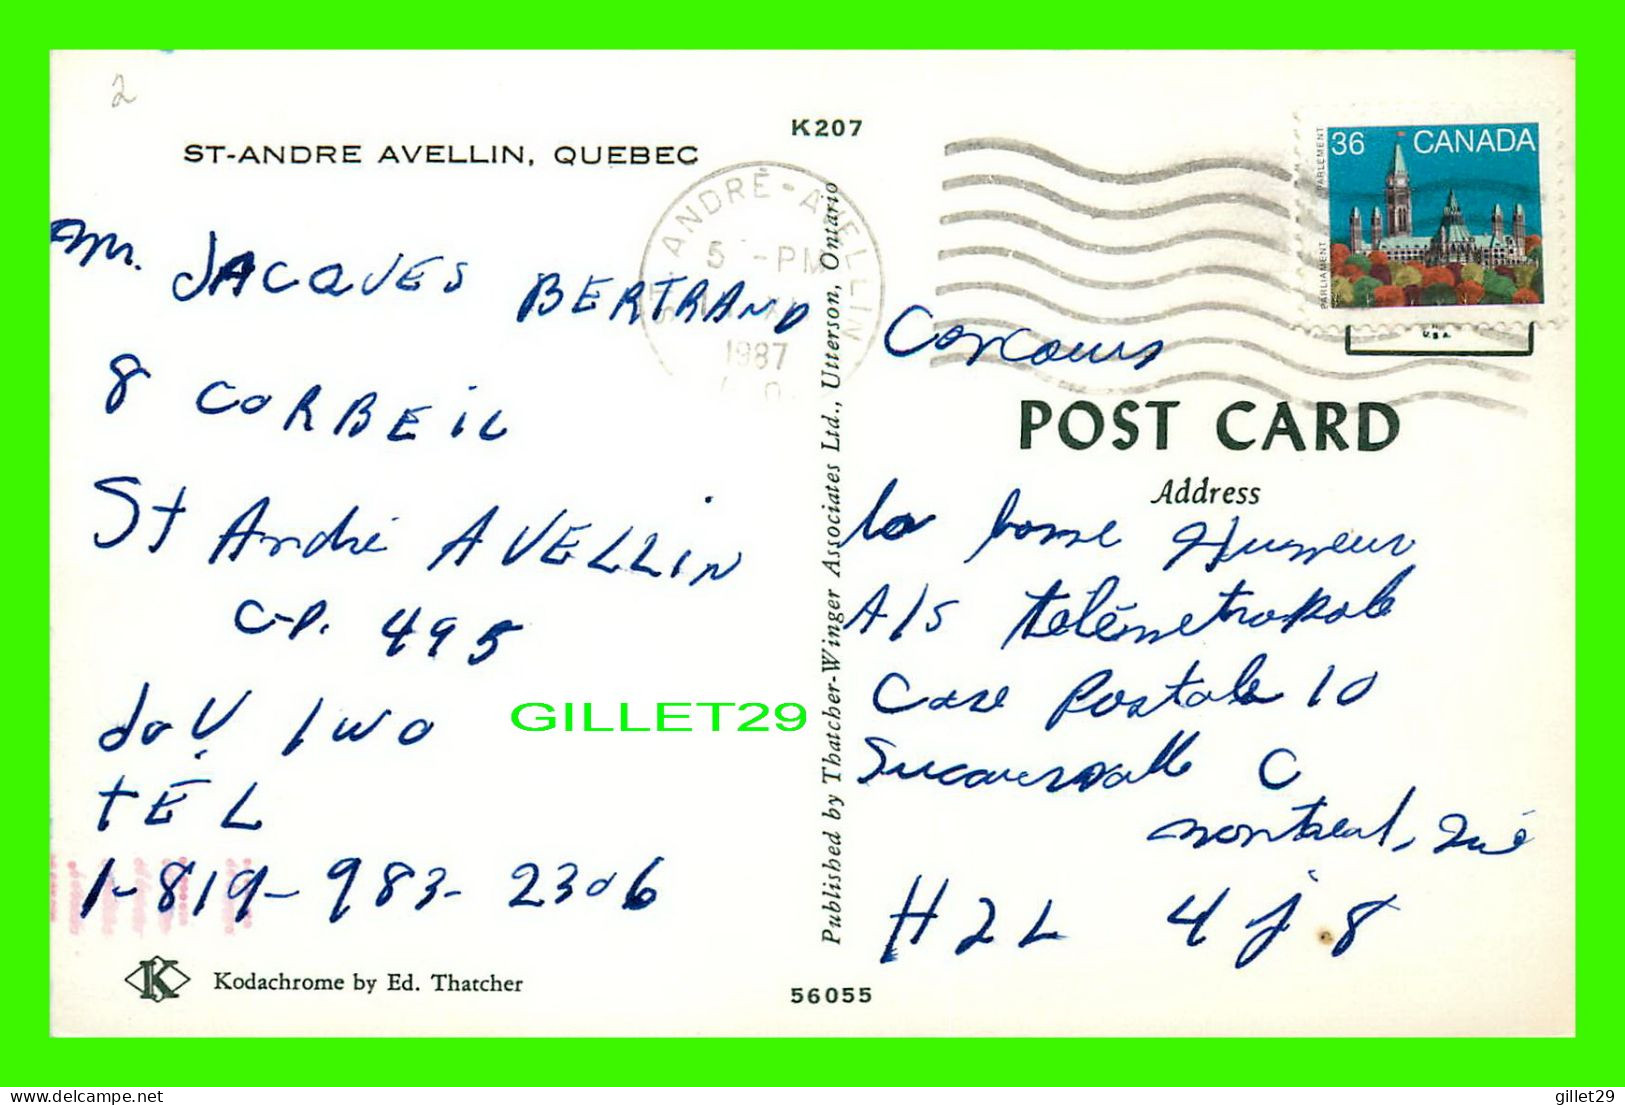 2
K207
ST-ANDRE AVELLIN, QUEBEC
ST-ANDRÉ-AVELLIN
5 -PM
1987
36 CANADA
PARLIAMENT PARLEMENT
U.S.A.
Mr. JACQUES BERTRAND
8 CORBEIL
St André AVELLIN
C-P. 495
JoV. 1WO
TÉL
1-819-983-2306
Concours
POST CARD
Address
la bonne Humeur
A/S télémetropole
Case Postale 10
Succursalle C
Montreal, Qué
H2L 4J8
Published by Thatcher-Winger Associates Ltd., Utterson, Ontario
K
Kodachrome by Ed. Thatcher
56055
GILLET29
gillet29